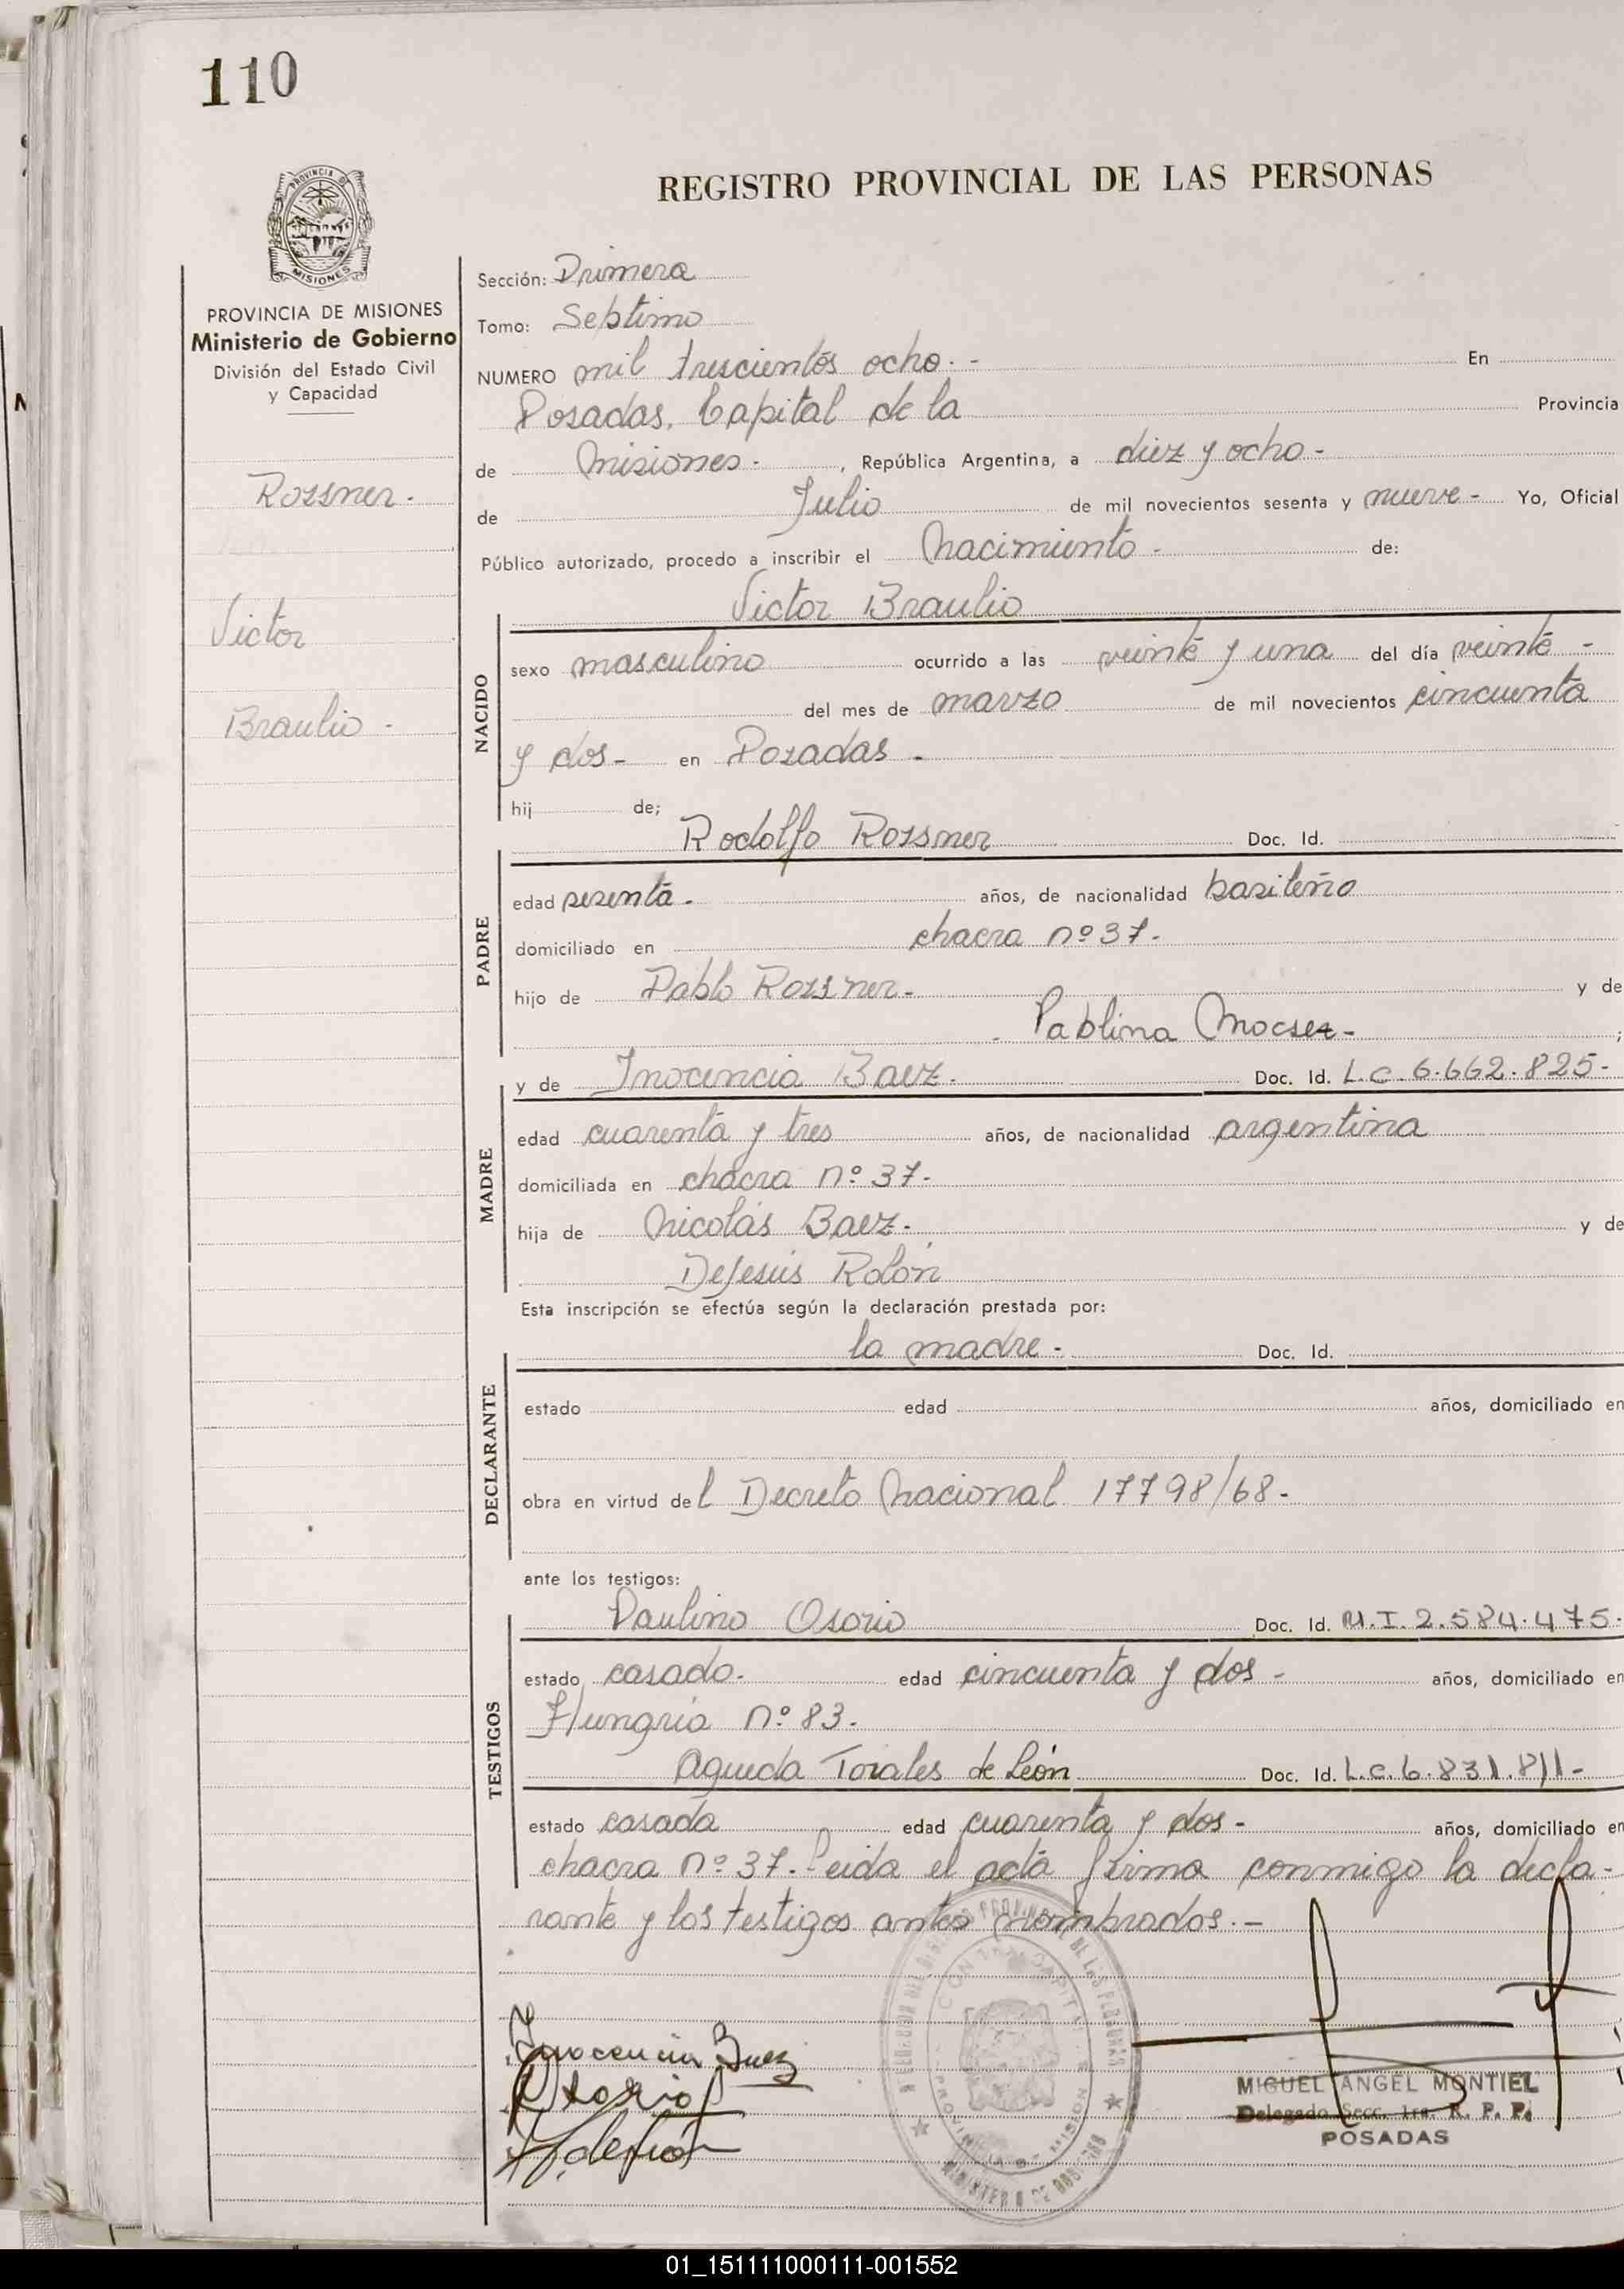 110
REGISTRO PROVINCIAL DE LAS PERSONAS
PROVINCIA DE MISIONES
Ministerio de Gobierno
División del Estado Civil
y Capacidad
Rossner.
Victor
Braulio -
Sección: Primera
Tomo: Septimo
NUMERO mil trescientos ocho. - En
Posadas, Capital de la Provincia
de Misiones. , República Argentina, a diez y ocho -
de Julio de mil novecientos sesenta y nueve - Yo, Oficial
Público autorizado, procedo a inscribir el Nacimiento - de:
Victor Braulio
NACIDO
sexo masculino ocurrido a las veinte y una del día veinte -
del mes de marzo de mil novecientos cincuenta
y dos - en Posadas -
hij de;
Rodolfo Rossner Doc. Id.
PADRE
edad sesenta - años, de nacionalidad brasileño
domiciliado en chacra nº 37.
hijo de Pablo Rossner - y de
Pablina Mocser - ;
y de Inocencia Baez. Doc. Id. L.C. 6.662.825-
MADRE
edad cuarenta y tres años, de nacionalidad argentina
domiciliada en chacra nº 37.
hija de Nicolás Baez. y de
DeJesús Rolón
Esta inscripción se efectúa según la declaración prestada por:
la madre - Doc. Id.
DECLARANTE
estado edad años, domiciliado en
obra en virtud del Decreto Nacional 17798/68-
ante los testigos:
Paulino Osorio Doc. Id. M.I. 2.584.475.
TESTIGOS
estado casado. edad cincuenta y dos - años, domiciliado en
Hungria nº 83.
Agueda Torales de León Doc. Id. L.C. 6.831.811-
estado casada edad cuarenta y dos - años, domiciliado en
chacra nº 37. Leida el acta firma conmigo la decla-
rante y los testigos antes nombrados. -
Inocencia Baez
Osorio
de León
MIGUEL ANGEL MONTIEL
Delegado Secc. 1ra. R. P. P.
POSADAS
01_151111000111-001552